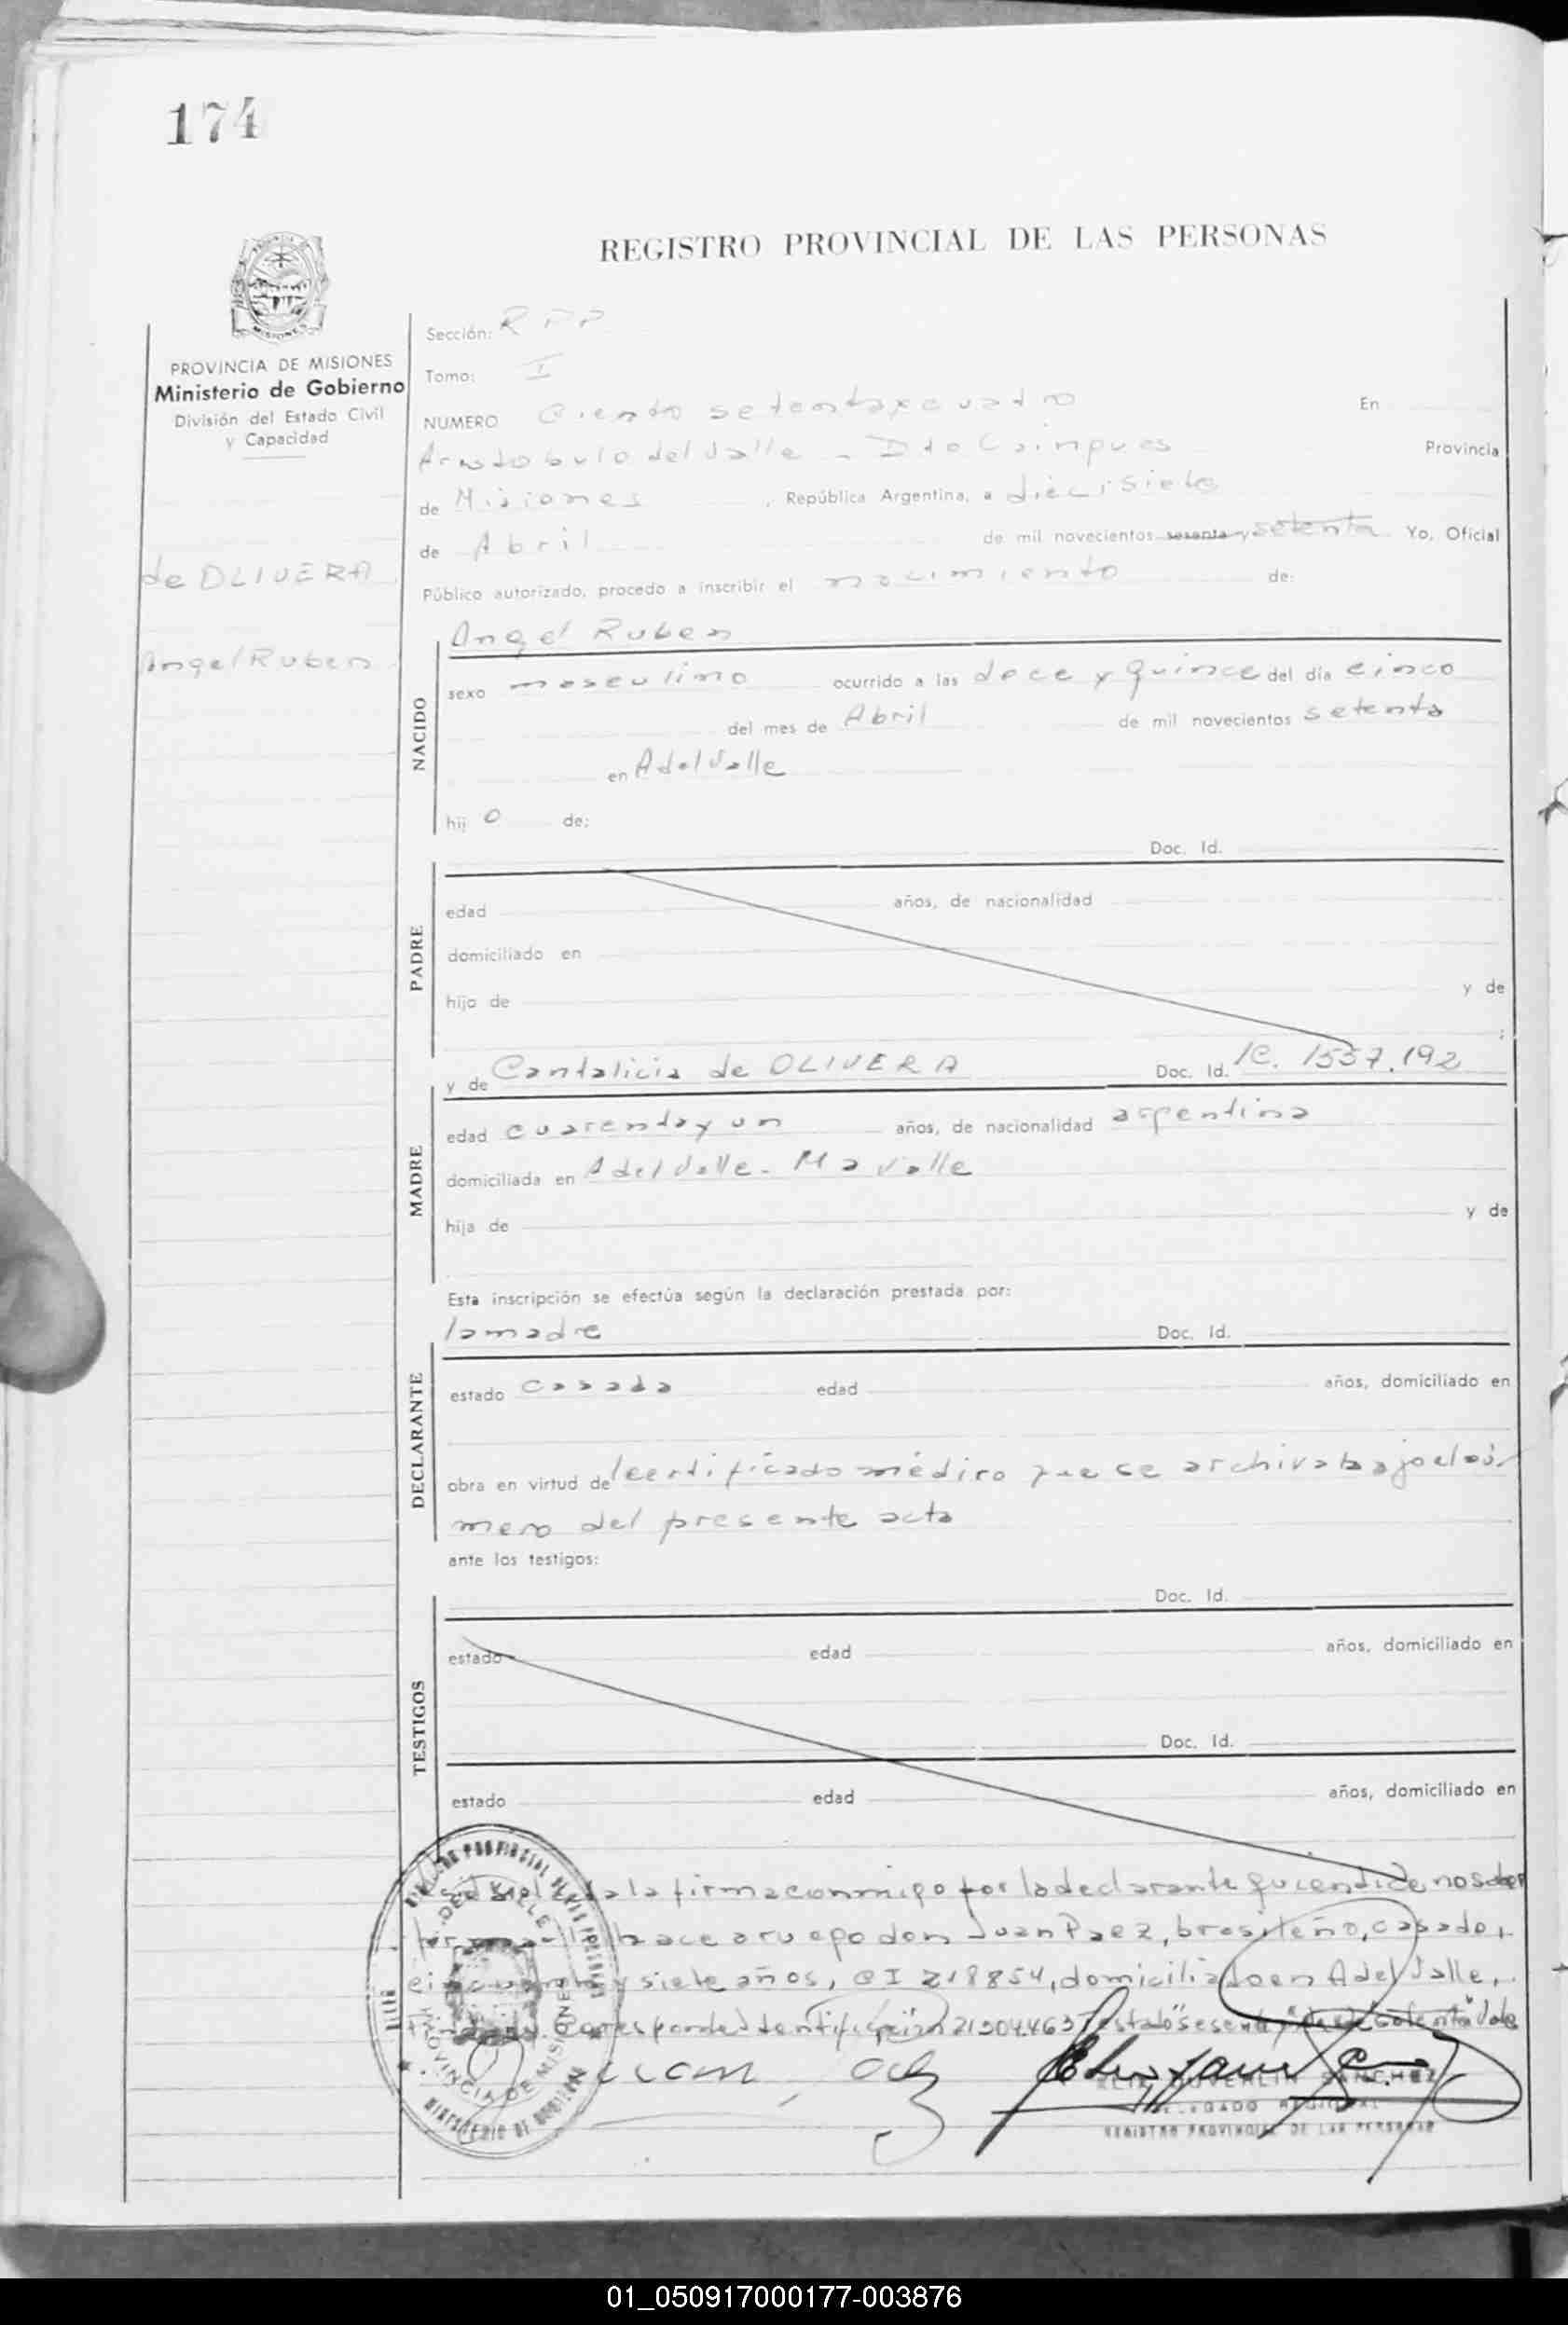 174
REGISTRO PROVINCIAL DE LAS PERSONAS
MISIONES
PROVINCIA DE MISIONES
Ministerio de Gobierno
División del Estado Civil
y Capacidad
de OLIVERA
Angel Ruben
Sección: RPP
Tomo: I
NUMERO Ciento setentaycuatro En
Aristobulo del Valle - Dto Cainguas Provincia
de Misiones , República Argentina, a diecisiete
de Abril de mil novecientos sesenta y setenta Yo, Oficial
Público autorizado, procedo a inscribir el nacimiento de:
NACIDO
Angel Ruben
sexo masculino ocurrido a las doce y quince del día cinco
del mes de Abril de mil novecientos setenta
en AdelValle
hij o de:
PADRE
Doc. Id.
edad años, de nacionalidad
domiciliado en
hijo de y de
;
MADRE
y de Cantalicia de OLIVERA Doc. Id. 1557.192
edad cuarentay un años, de nacionalidad argentina
domiciliada en AdelValle-
hija de y de
Esta inscripción se efectúa según la declaración prestada por:
DECLARANTE
lamadre Doc. Id.
estado casada edad años, domiciliado en
obra en virtud de certificado médico que se archiva bajo el nú
mero del presente acta
ante los testigos:
TESTIGOS
Doc. Id.
estado edad años, domiciliado en
Doc. Id.
estado edad años, domiciliado en
la firma conmigo por ladeclarante quiendice nosaber
hace a ruego don Juan Paez, brasileño, casado,
cincuenta y siete años, CI 218854, domiciliadoen AdelValle,
DEL VALLE
PROVINCIA DE MISIONES
MINISTERIO DE GOBIERNO
SANCHEZ
DELEGADO REGIONAL
REGISTRO PROVINCIAL DE LAS PERSONAS
01_050917000177-003876